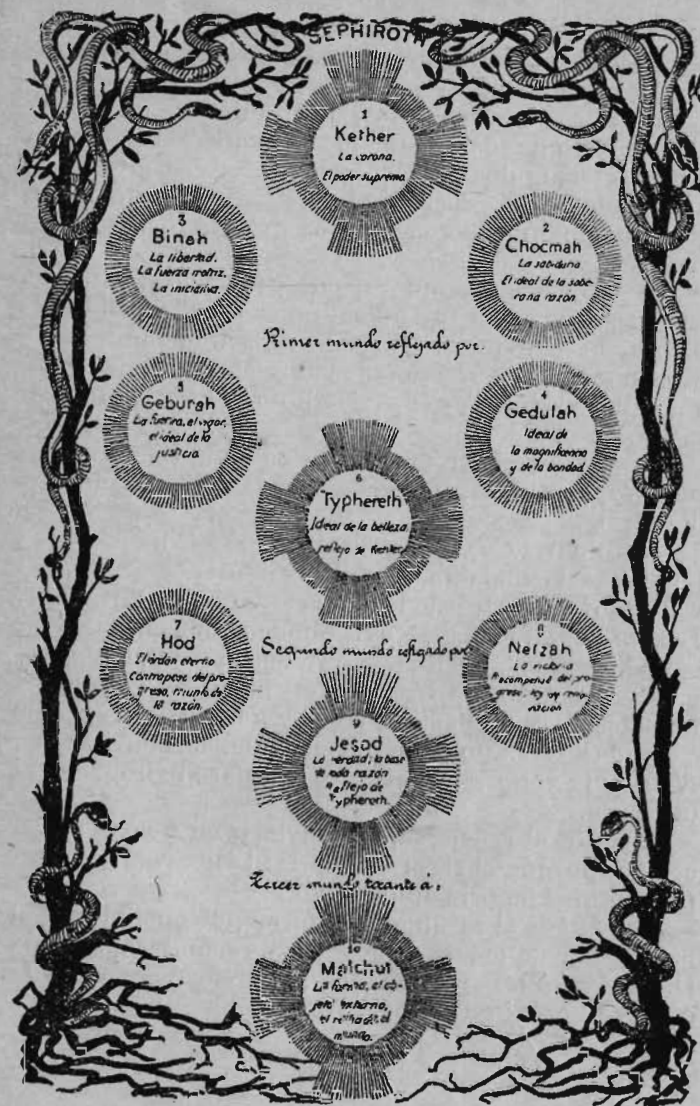 SEPHIROTH
1
Kether
La corona.
El poder supremo
3
Binah
La libertad.
La fuerza motriz.
La iniciativa.
2
Chocmah
La sabiduria
El ideal de la sobe-
rana razón
Primer mundo reflejado por.
5
Geburah
La fuerza, el vigor,
el ideal de la
justicia
4
Gedulah
Ideal de
la magnificencia
y de la bondad
6
Typhereth
Ideal de la belleza
reflejo de Kether
7
Hod
El órden eterno
Contrapeso del pro-
greso, triunfo de
la razón.
Segundo mundo reflejado por
8
Netzah
La victoria
Recompensa del pro-
greso, ley de
9
Jesod
La verdad, la base
de toda razón
Reflejo de
Typheroth.
Tercer mundo tocante á:
10
Malchut
La forma, el ob-
jeto externo,
el
mundo.